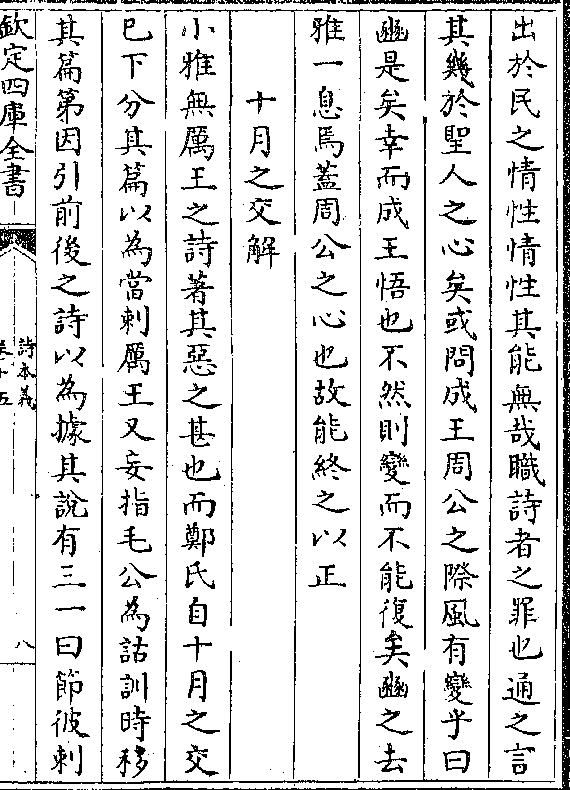 出於民之情性情性其能無哉職詩者之罪也通之言
其幾於聖人之心矣或問成王周公之際風有變乎曰
豳是矣幸而成王悟也不然則變而不能復矣豳之去
雅一息焉蓋周公之心也故能終之以正
十月之交解
小雅無厲王之詩著其惡之甚也而鄭氏自十月之交
已下分其篇以為當刺厲王又妄指毛公為詁訓時移
其篇第因引前後之詩以為據其說有三一曰節彼刺
欽定四庫全書
詩本義
卷十五
八